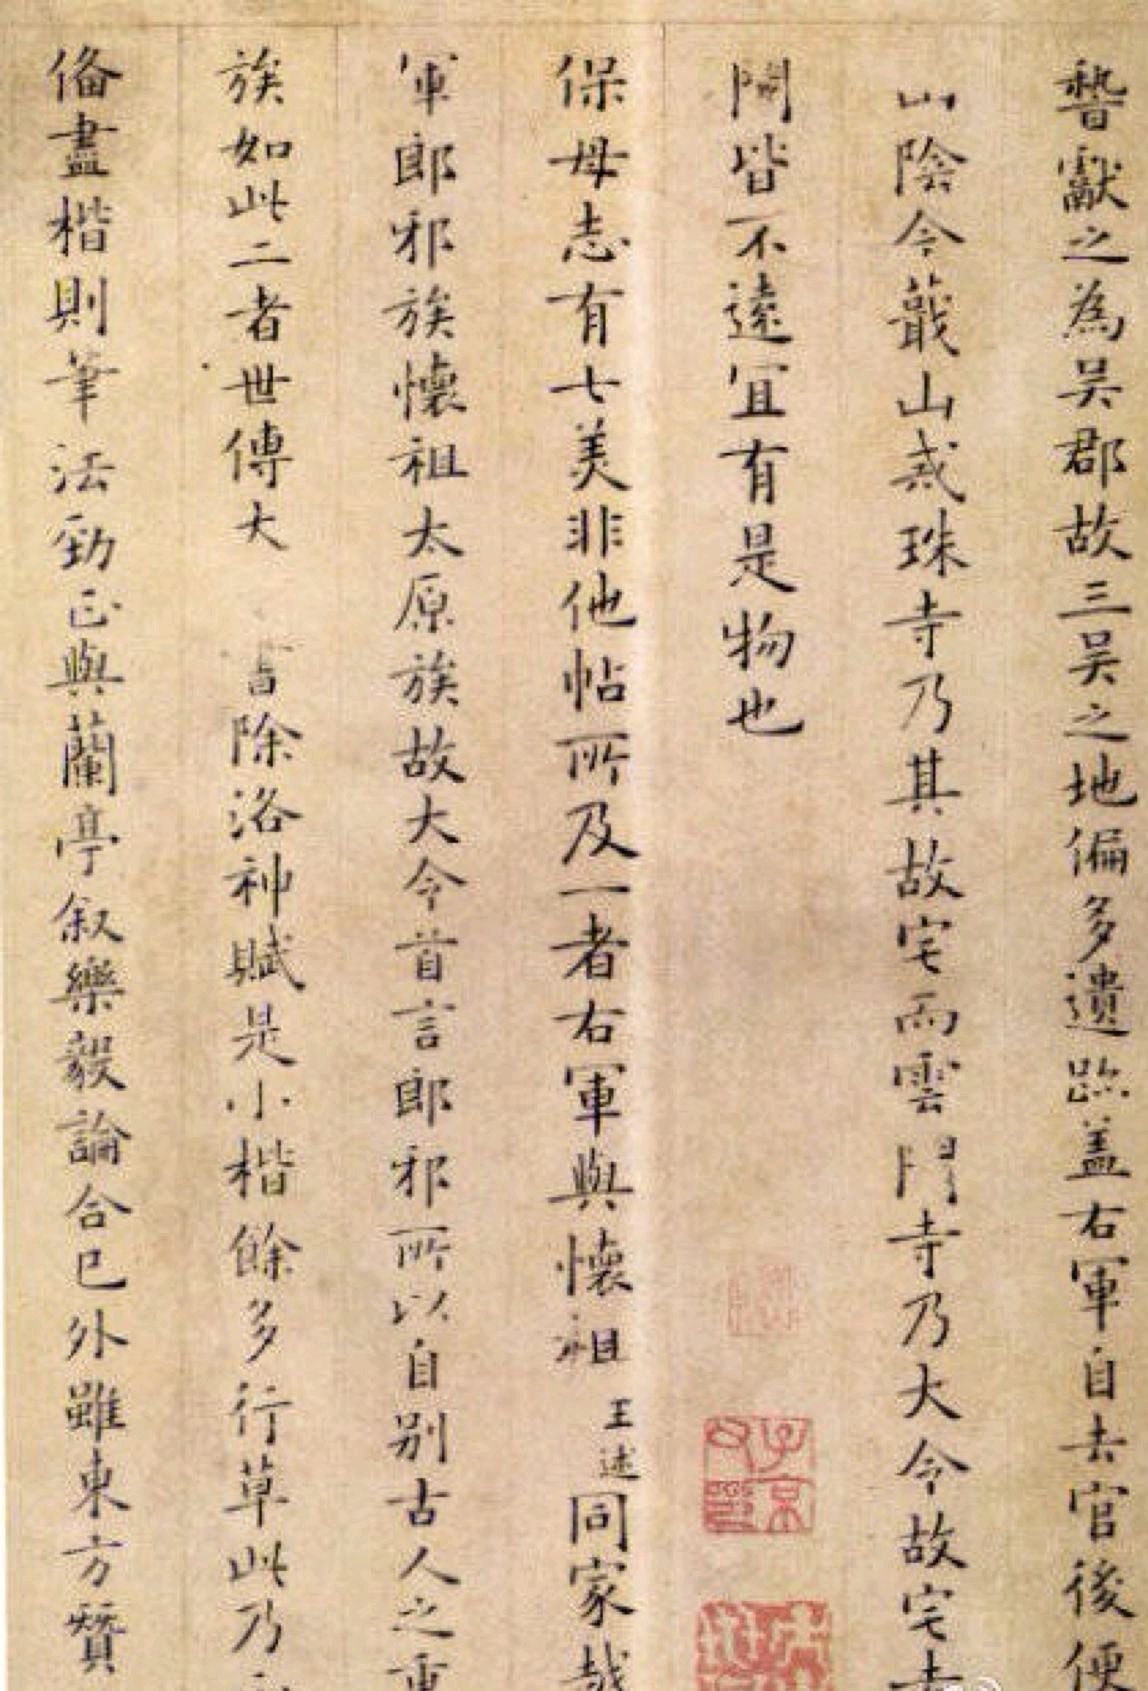 嵆獻之為吳郡故三吳之地偏多遺跡盖右軍自去官後便
山陰今蕺山戒珠寺乃其故宅而雲門寺乃大令故宅去
間皆不遠冝有是物也
保母志有七美非他帖所及一者右軍與懷祖王述同家越
軍郎邪族懷祖太原族故大令首言郎邪所以自别古人之重
族如此二者世傳大 書除洛神賦是小楷餘多行草此乃
俻盡楷則筆法勁正與蘭亭叙樂毅論合已外雖東方贊